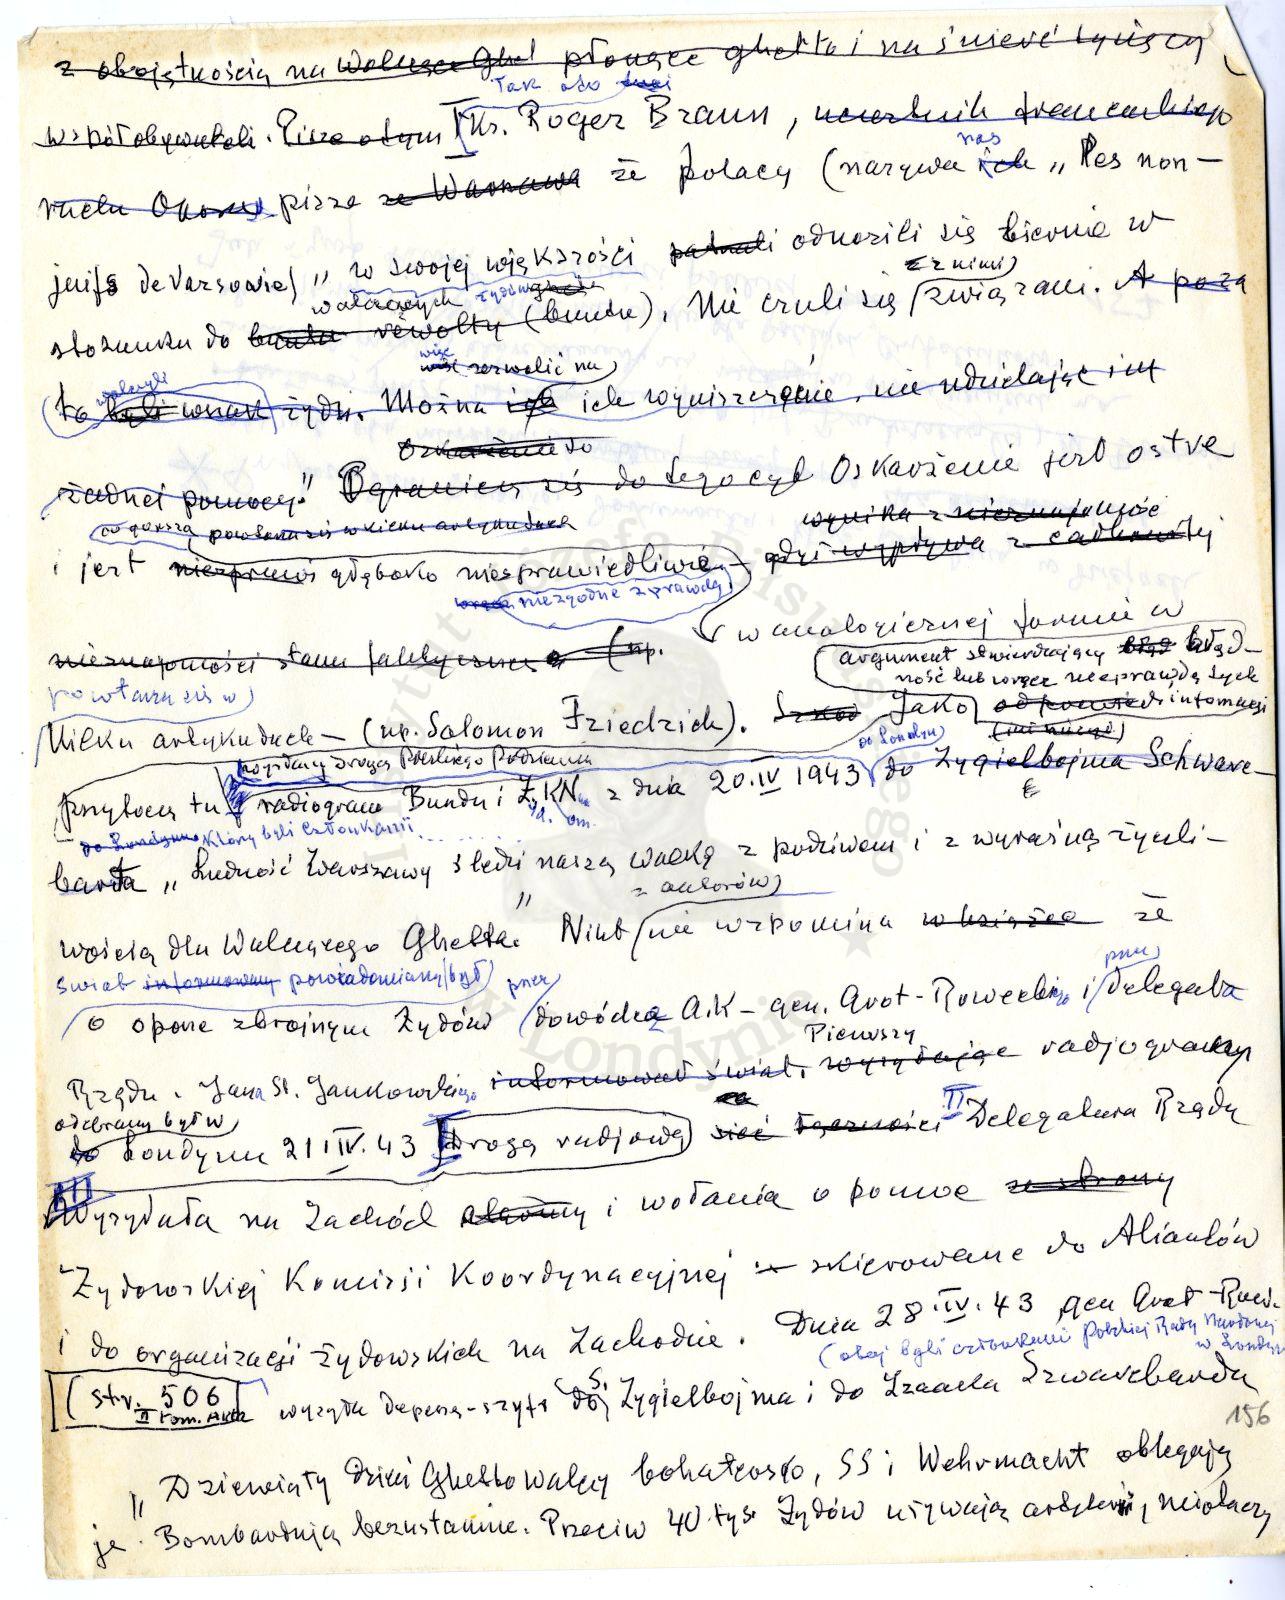 z obojętnością na walczące Ghet płonące ghetto i na śmierć tysięcy
Tak oto
współobywateli. Pisze o tym Ks. Roger Braun, uczestnik francuskiego
nas
ruchu Oporu pisze ze Warszawa że polacy (nazywa ich „Les non-
juifs de Varsovie) „w swojej większości patrzali odnosili się biernie w
z nimi
walczących żydów
stosunku do buntu rewolty (buntu). Nie czuli się związani. A poza
więc zezwolić na
walczyli
to byli wszak żydzi. Można ich wyniszczenie, nie udzielając im
Oskarżenie do
żadnej pomocy." Ograniczę się do tego cyt Oskarżenie jest ostre
co gorsza powtarza się w kilku artykułach
wynika z nieznajomość
i jest niesprawi głęboko niesprawiedliwe – gdyż wypływa z całkowitej
wręcz niezgodne z prawdą
w analogicznej formie w
nieznajomości stanu faktycznego (np.
argument stwierdzający błąd błęd-
ność lub wręcz nieprawdę tych
powtarza się w
odpowiedź informacji
kilku artykułach – (np. Salomon Friedrich). Jako
(mi niego)
wysłany drogą Polskiego Podziemia
do Londynu
przytoczę tu radiogram Bundu i Ż.K.N. z dnia 20.IV 1943 do Zygielbojma Schwarc-
do Londynu którzy byli członkami
barda „Ludność Warszawy śledzi naszą walkę z podziwem i z wyraźną życzli-
z autorów
wością dla Walczącego Ghetta." Nikt nie wspomina w książce że
świat informowany powiadomiany był przez
przez
o oporze zbrojnym Żydów dowódcę A.K – gen. Grot-Roweckiego i Delegata
Pierwszy
Rządu. Jana St. Jankowskiego informował świat. wysyłając radjogramy
odebrany był w
do Londynu 21 IV. 43 Drogą radjową sieć łączności II Delegatura Rządu
III
Wysyłała na Zachód i wołania o pomoc ze strony
Żydowskiej Komisji Koordynacyjnej – skierowane do Aliantów
i do organizacji żydowskich na Zachodzie. Dnia 28.IV.43 gen Grot-Rowe.
(obaj byli członkami Polskiej Rady Narodowej
w Londynie
(str. 506
II tom. Akta
wysyła depeszę-szyfr do S. Zygielbojma i do Izaaka Szwarcbarda
156
„Dziewiąty dzień Ghetto walczy bohatersko, SS i Wehrmacht oblegają
je. Bombardują bezustannie. Przeciw 40 tys. Żydów używają artylerii, miotaczy
Instytut Józefa Piłsudskiego
w Londynie